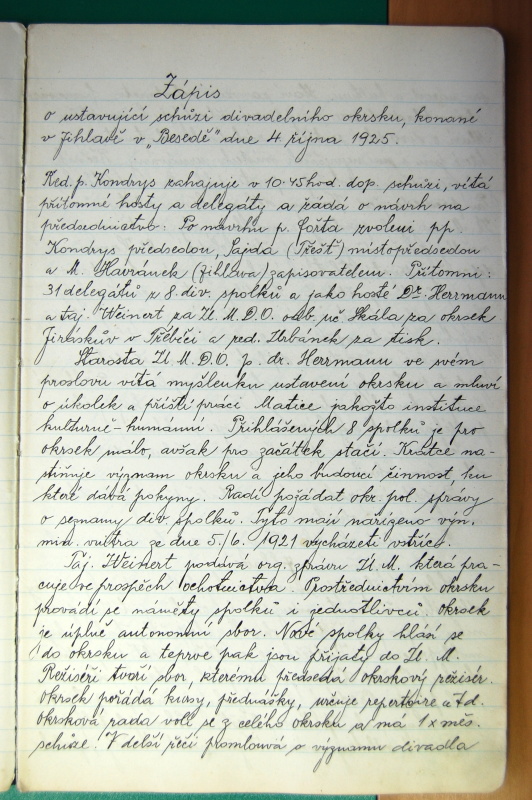 Zápis
o ustavující schůzi divadelního okrsku, konané
v Jihlavě v „Besedě" dne 4. října 1925.
Řed. p. Kondrys zahajuje v 10·45 hod. dop. schůzi, vítá
přítomné hosty a delegáty a žádá o návrh na
předsednictvo: Po návrhu p. Fořta zvoleni pp.
Kondrys předsedou, Sajda (Třešť) místopředsedou
a M. Havránek (Jihlava) zapisovatelem. Přítomni:
31 delegátů z 8. div. spolků a jako hosté Dr. Herrmann
a taj. Weinert za Ú. M. D. O. odb. uč. Skála za okrsek
Jiráskův v Třebíči a red. Urbánek za tisk.
Starosta Ú. M. D. O. p. dr. Herrmann ve svém
proslovu vítá myšlenku ustavení okrsku a mluví
o úkolech a příští práci Matice jakožto instituce
kulturně-humánní. Přihlášených 8 spolků je pro
okrsek málo, avšak pro začátek stačí. Krátce na-
stiňuje význam okrsku a jeho budoucí činnost, ku
které dává pokyny. Radí požádat okr. pol. správy
o seznamy div. spolků. Tyto mají nařízeno výn.
min. vnitra ze dne 5./6. 1921 vycházeti vstříc.
Taj. Weinert podává org. zprávu Ú. M. která pra-
cuje ve prospěch ochotnictva. Prostřednictvím okrsku
provádí se náměty spolků i jednotlivců, okrsek
je úplně autonomní sbor. Nové spolky hlásí se
do okrsku a teprve pak jsou přijaty do Ú. M.
Režiséři tvoří sbor, kterému předsedá okrskový režisér.
Okrsek pořádá kursy, přednášky, určuje repertoire a t d.
Okrsková rada volí se z celého okrsku a má 1 x měs.
schůze. V delší řeči promlouvá o významu divadla